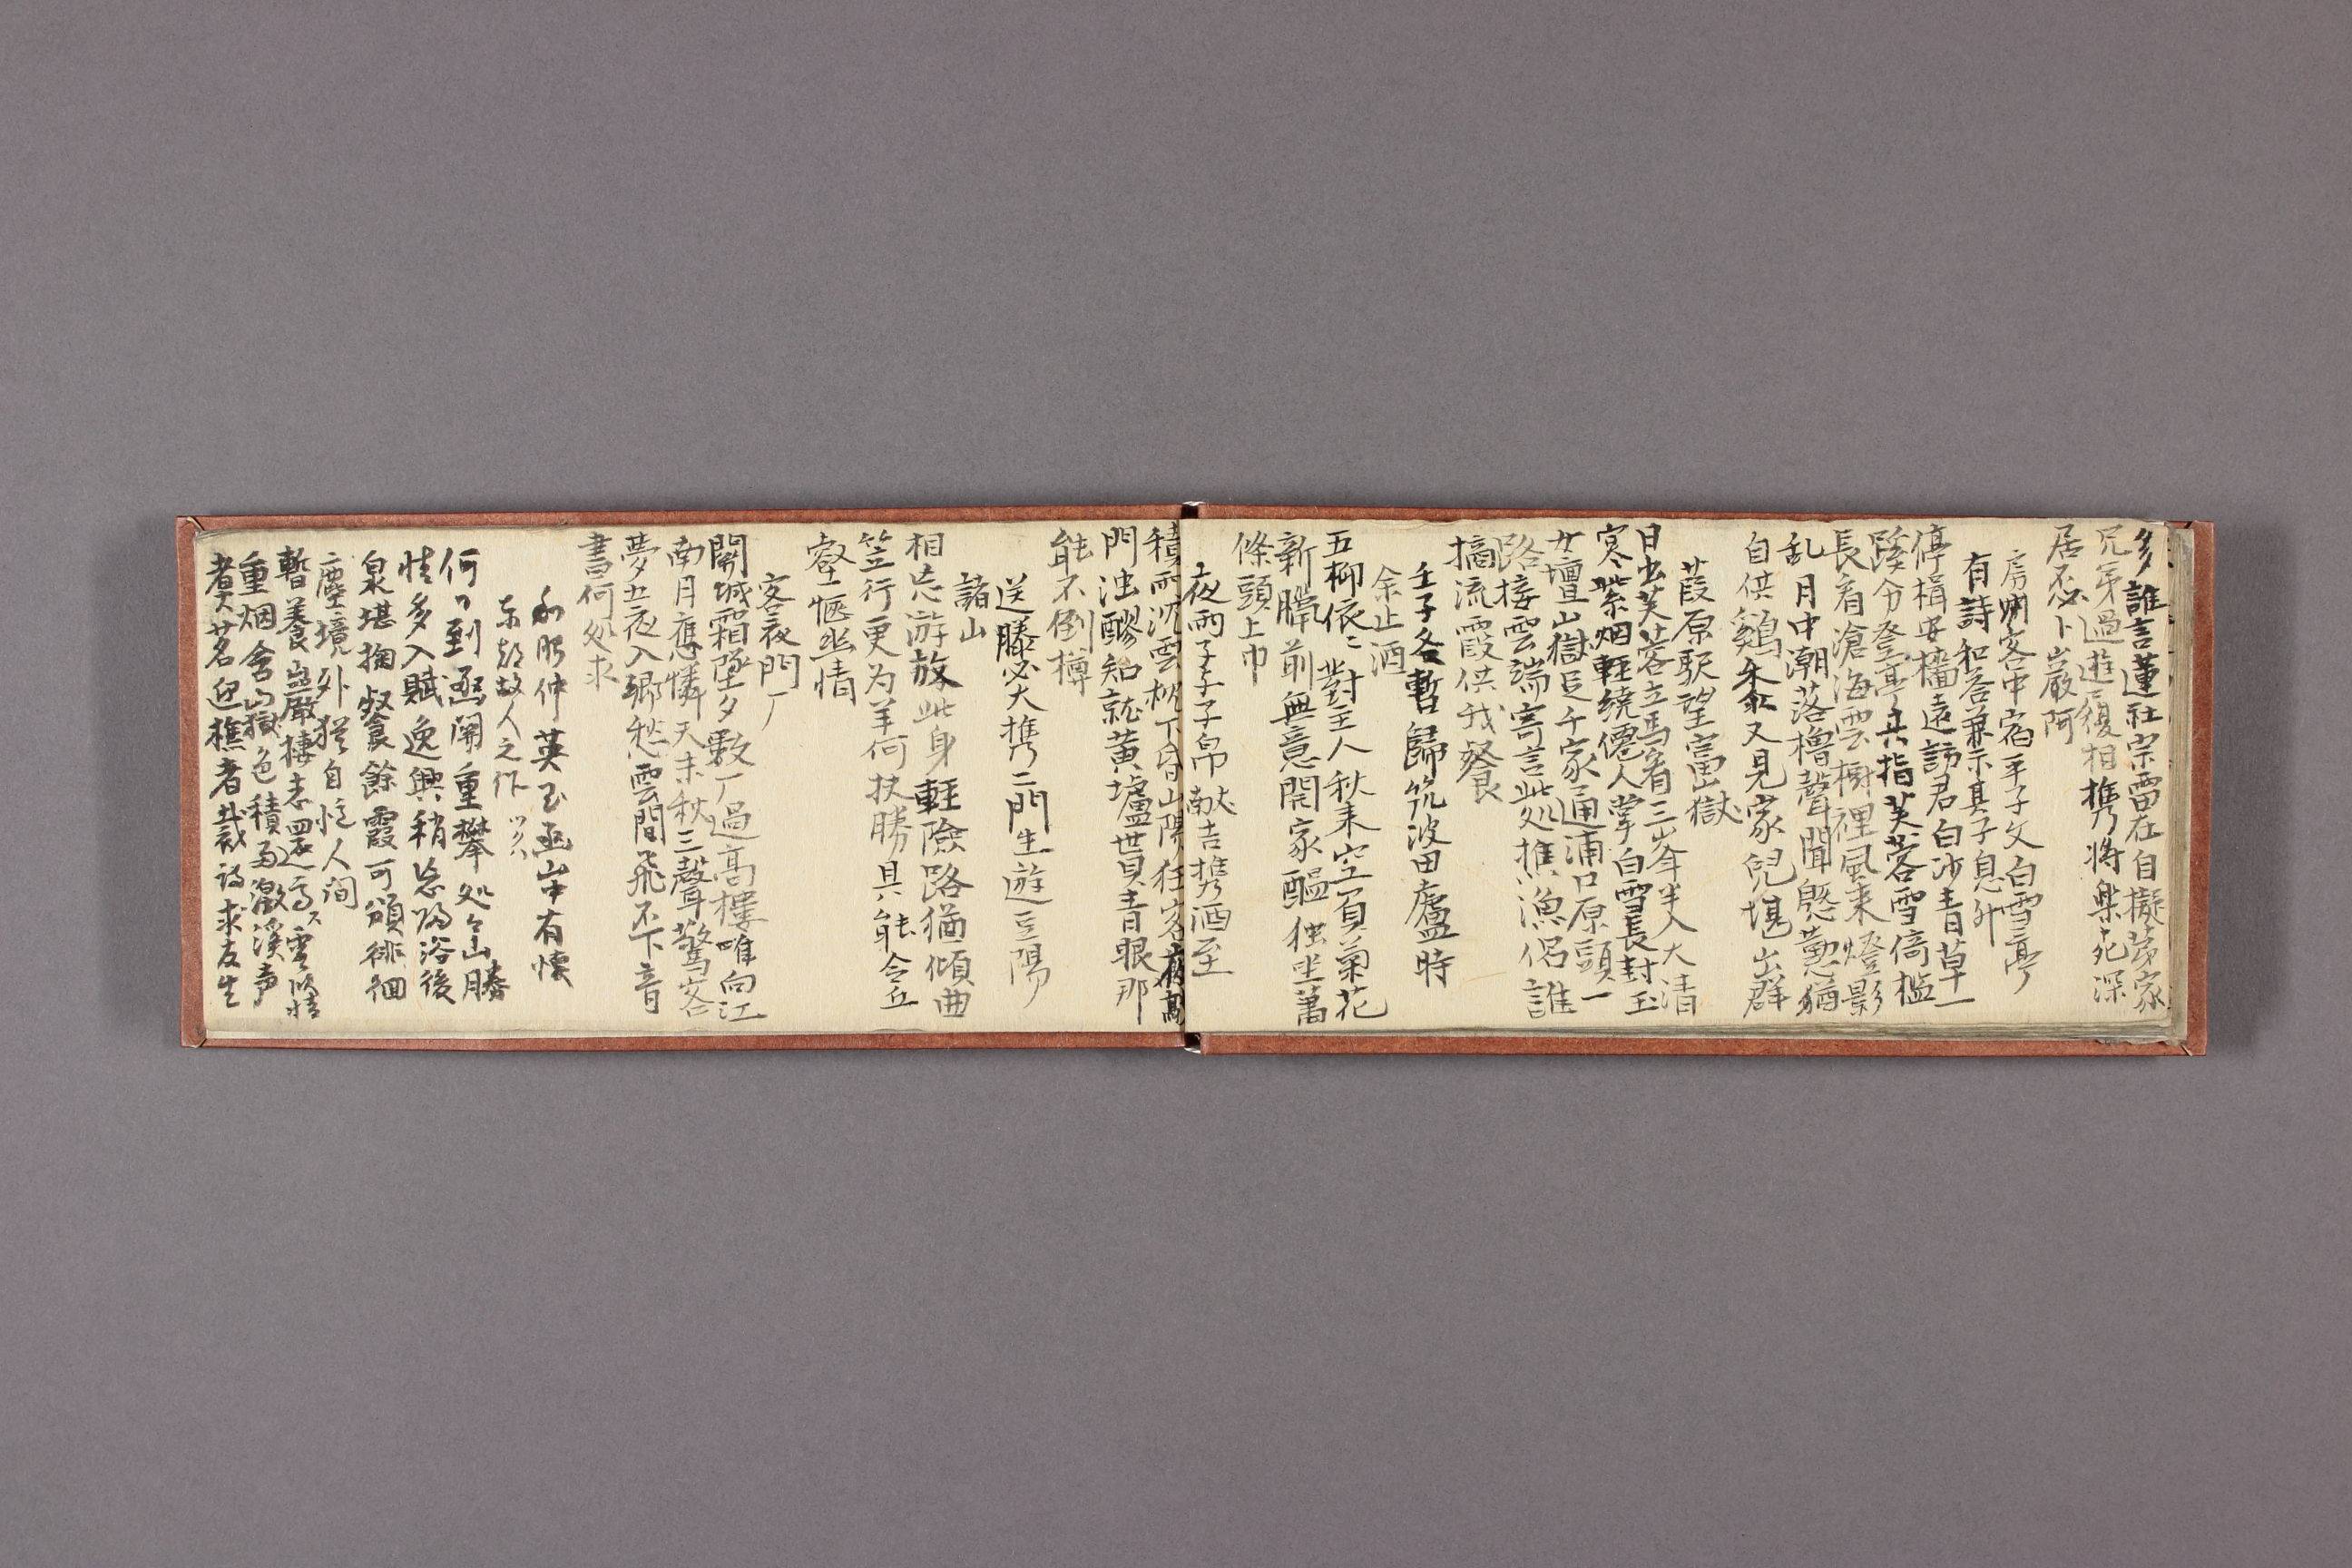 多誰言蓮社宗雷在自擬茅家
兄弟過遊復相携将樂苑深
居不必卜岩嚴阿
房州客中宿平子父白雪亭
有詩和答兼示其子息舛
停楫安檣遠訪君白沙青草一
蹊分登亭共指芙蓉雪倚檻
長看滄海雲樹裡風来燈影
乱月中潮落櫓聲聞慇懃猶
自供鷄黍又見家兒堪出群
葭原駅望富獄
日出芙蓉立馬看三峯半入大清
寒紫烟軽繞僊人掌白雪長封玉
女壇山獄呈千家通浦口原頭一
路接雲端寄言此処樵漁侶誰
摘流霞供我餐
壬子冬暫歸筑波田廬時
余止酒
五柳依〻對主人秋来空負菊花
新醉前無意開家醞独坐蕭
條頭上巾
夜雨子手子帛献吉携酒至
積雨沉雲枕下昏山陽狂客夜敲
門浊醪知就黄壚世貝青眼那
能不倒樽
送滕必大携二門生遊豆陽
諸山
相忘游放此身軽險路猶傾曲
笠行更为羊何扶勝具能令丘
壑愜幽情
客夜聞厂
関城霜墜夕數厂過高樓唯向江
南月應憐天末秋三聲驚客
夢五夜入郷愁雲間飛不下音
書何処求
和肥仲英玉函山中有懐
东都故人之作
何日到函関重攀処〻山勝
情多入賦逸興稍忘帰浴後
泉堪掬餐餘霞可領徘徊
塵境外猶自忆人间
暫養幽嚴棲志
重烟含山獄色積雨激溪声
煮茗迎樵者裁诗求友生